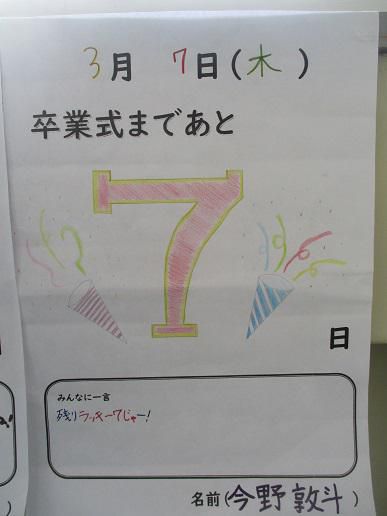 3月 7日(木)
卒業式まであと
7
日
みんなに一言
残りラッキー7じゃー!
名前(今野敦斗)